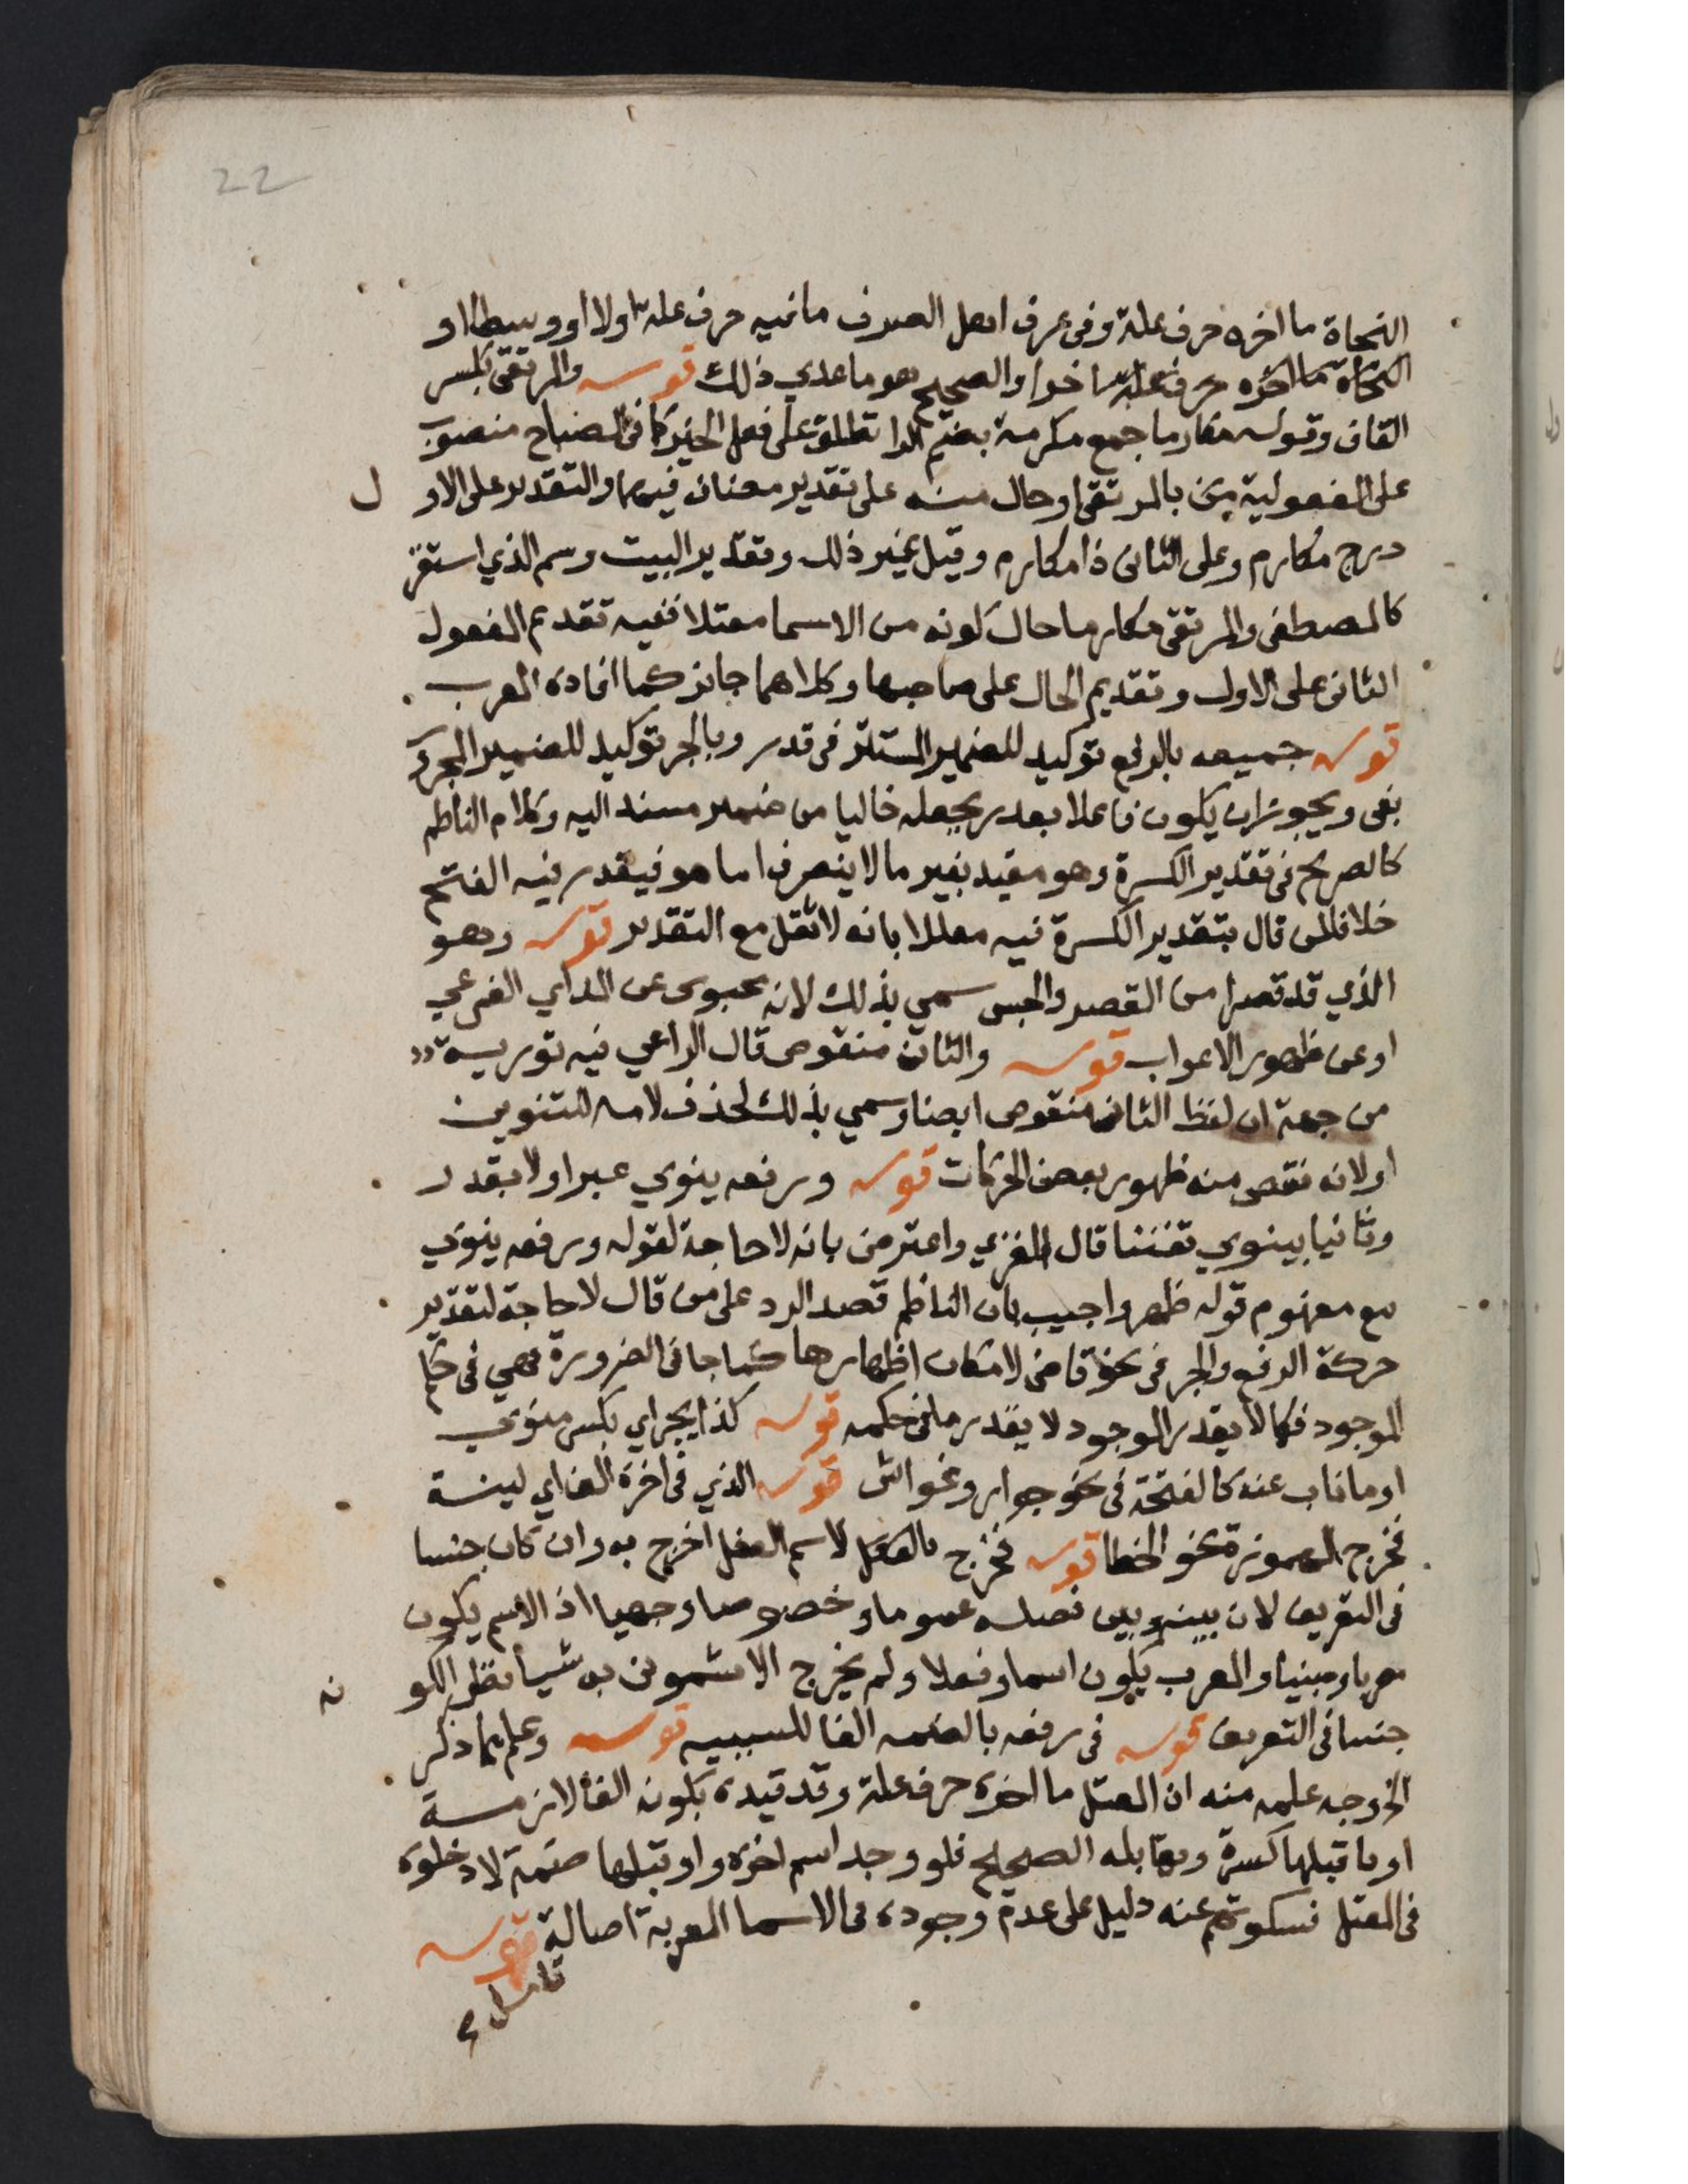 22
النحاة ما اخره حرف علة وفى عرف اهل الصرف ما فيه حرف علة اولا او وسطا او
النحاة ما اخره حرف علة اخرا والصحيح هو ما عدي ذلك قوله والمرتقى بكسر
القاف وقوله مكارما جمع مكرمة بضم الرا تطلق على فعل الخير كما فى المصباح منصوب
على المفعولية بالمرتقى او حال منه على تقدير مضاف فيهما والتقدير على الاول
درج مكارم وعلى الثانى ذا مكارم وقيل غير ذلك وتقدير البيت وسم الذي استقر
كالمصطفى والمرتقى مكارما حال كونه من الاسما معتلا ففيه تقديم المفعول
الثانى على الاول وتقديم الحال على صاحبها وكلاهما جائز كما افاده المعرب
قوله جميعه بالرفع توكيد للضمير المستتر فى قدر وبالجر توكيد للضمير المجرور
بفى ويجوز ان يكون فاعلا بقدر بجعله خاليا من ضمير مسند اليه وكلام الناظم
كالصريح فى تقدير الكسرة وهو مقيد بغير ما لا ينصرف اما هو فيقدر فيه الفتح
خلافا لمن قال بتقدير الكسرة فيه معللا بانه لا ثقل مع التقدير قوله وهو
الذي قد قصرا من القصر والحبس سمي بذلك لانه محبوس عن المد اي الفرعي
او عن ظهور الاعراب قوله والثان منقوص قال الراعي فيه تورية
من جهة ان لفظ الثان منقوص ايضا وسمي بذلك لحذف لامه للتنوين
او لانه نقص منه ظهور بعض الحركات قوله ورفعه ينوي عبر اولا بقدر
وثانيا بينوي تفننا قال الغزي واعترض بانه لا حاجة لقوله ورفعه ينوي
مع مفهوم قوله ظهر واجيب بان الناظم قصد الرد على من قال لا حاجة لتقدير
حركة الرفع والجر فى نحو قاض لامكان اظهارها كما جا فى الضرورة فهي فى حكم
الموجود فكما لا يقدر الموجود لا يقدر ما فى حكمه قوله كذا يجر اي بكسر منوي
او ما ناب عنه كالفتحة فى نحو جوار وغواش قوله الذي فى اخره الف اي لينة
فخرج المهموزة نحو الخطا قوله فخرج بالفعل لاسم الفعل اخرج به وان كان جنسا
فى التعريف لان بينه وبين فصله عموما وخصوصا وجهيا اذ الاسم يكون
معربا ومبنيا والمعرب يكون اسما وفعلا ولم يخرج الاشمونى به شيا نظرا لكونه
جنسا فى التعريف قوله فى رفعه بالضمه الفا للسببيه قوله وعلم مما ذكر
الخ وجه علمه منه ان المعتل ما اخره حرف علة وقد قيده بكونه الفا لازمة
او ما قبلها كسرة ومقابله الصحيح فلو وجد اسم اخره واو قبلها ضمة لادخلوه
فى المعتل فسكوتهم عنه دليل على عدم وجوده فى الاسما المعربة اصالة قوله
تامل